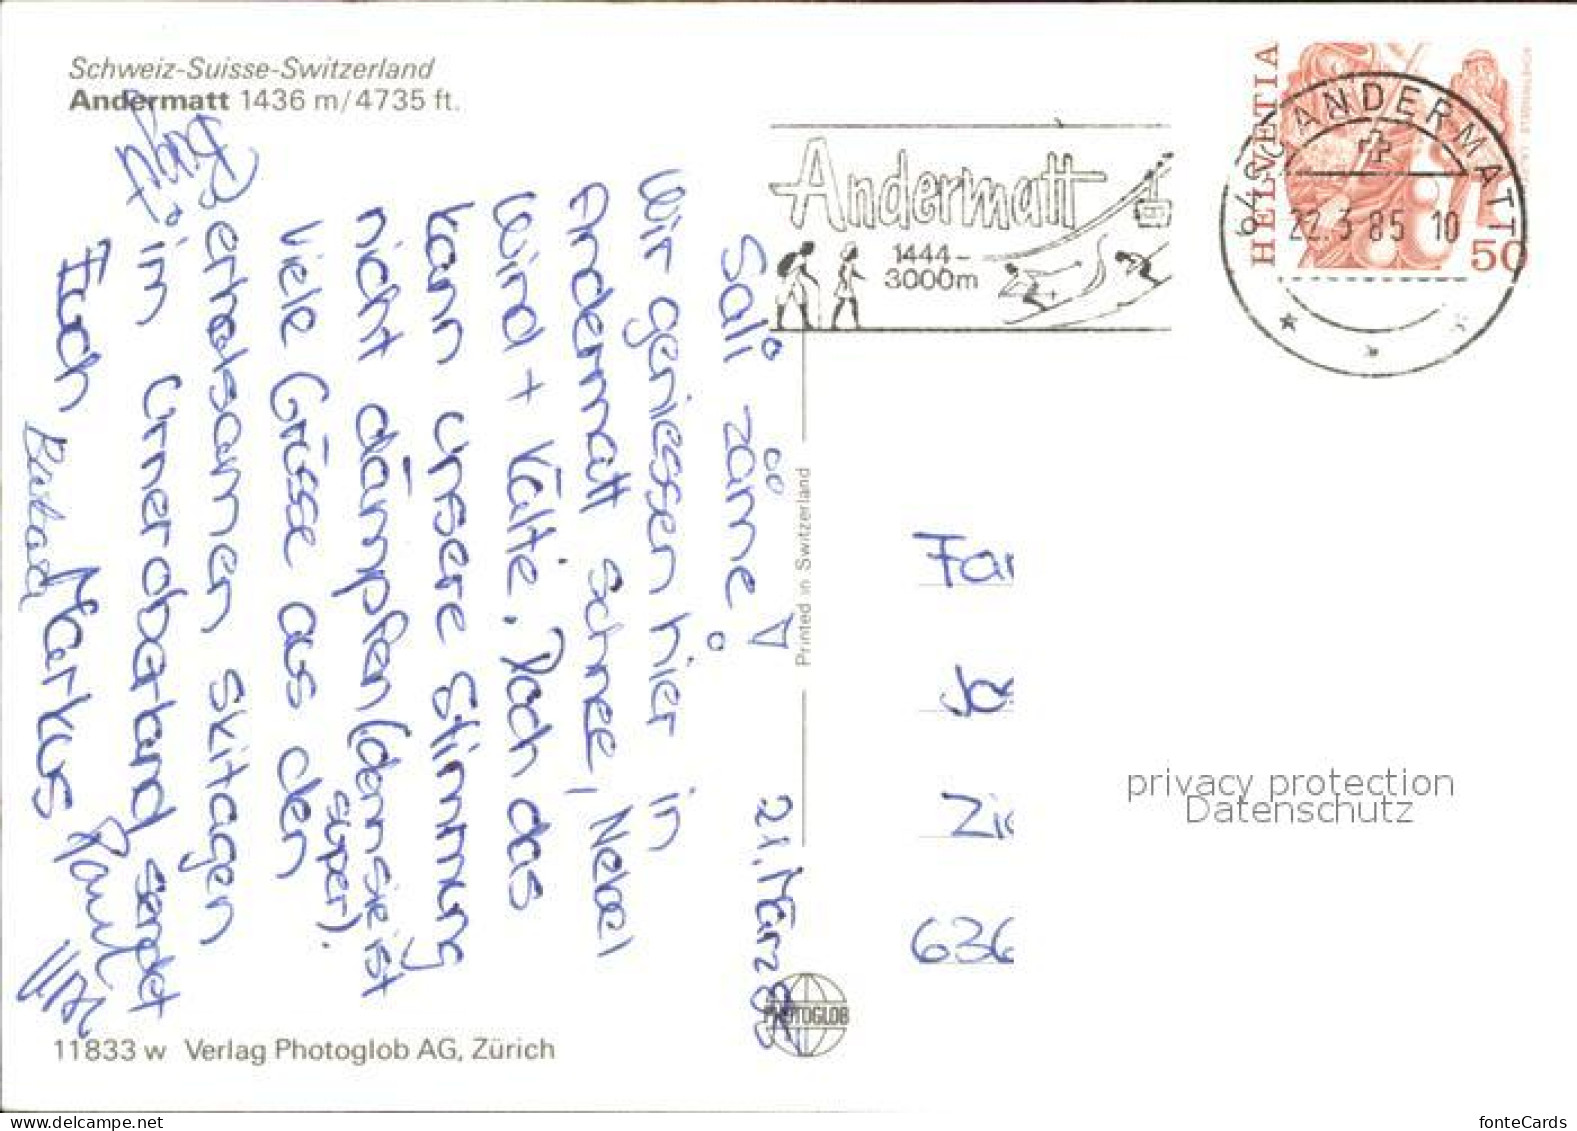 Schweiz-Suisse-Switzerland
Andermatt 1436 m/4735 ft.
21. März 85
Sali zäme!
Wir geniessen hier in
Andermatt Schnee, Nebel
Wind + Kälte. Doch das
kann unsere Stimmung
nicht dämpfen (denn sie ist
super).
Viele Grüsse aus den
erholsamen Skitagen
im Urneroberland sendet
Euch
Markus
11833 w Verlag Photoglob AG, Zürich
Printed in Switzerland
PHOTOGLOB
Andermatt
1444-
3000m
HELVETIA
50
ANDERMATT
22.3.85 10
Fa
Zi
636
privacy protection
Datenschutz
fonteCards